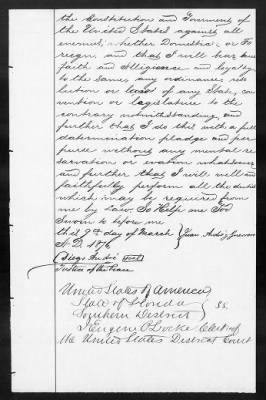 the Constitution and Government of
the United States against all
enemies, whether Domestic or Fo
reign, and that I will bear true
faith and allegiance and loyalty
to the same, any ordinance, reso
lution or laws of any State, con
vention or legislature to the
contrary notwithstanding, and
further that I do this with a full
determination pledge and pur
pose without any mental re
servation or evasion whatsoever
and further that I will well and
faithfully perform all the duties
which may be required from
me by Law. So Help me God
Sworn to before me
this 9th day of March } Juan
A.D. 1876
Justice of the Peace
United States of America
State of Florida } SS.
Southern District
I Eugene O Locke Clerk of
the United States District Court